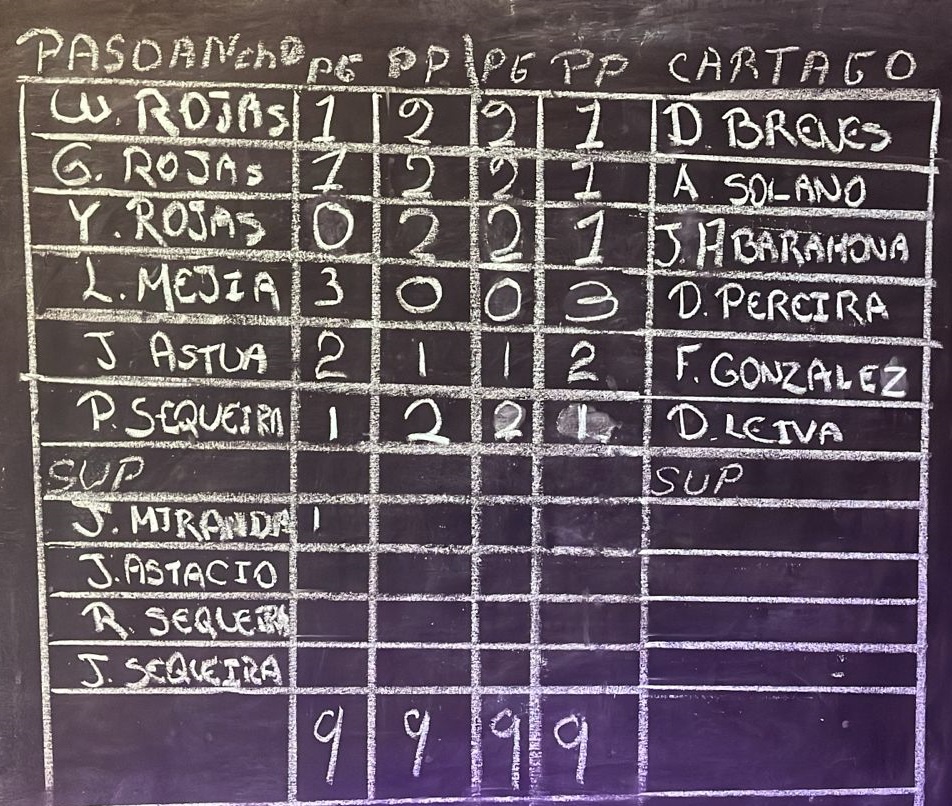 PASOANCHO PG PP PG PP CARTAGO
W. ROJAS 1 2 2 1 D BRENES
G. ROJAS 1 2 2 1 A SOLANO
Y. ROJAS 0 2 2 1 J. A BARAHONA
L. MEJIA 3 0 0 3 D. PEREIRA
J ASTUA 2 1 1 2 F. GONZALEZ
P. SEQUEIRA 1 2 2 1 D. LEIVA
SUP SUP
J. MIRANDA 1
J. ASTACIO
R. SEQUEIRA
J. SEQUEIRA
9 9 9 9